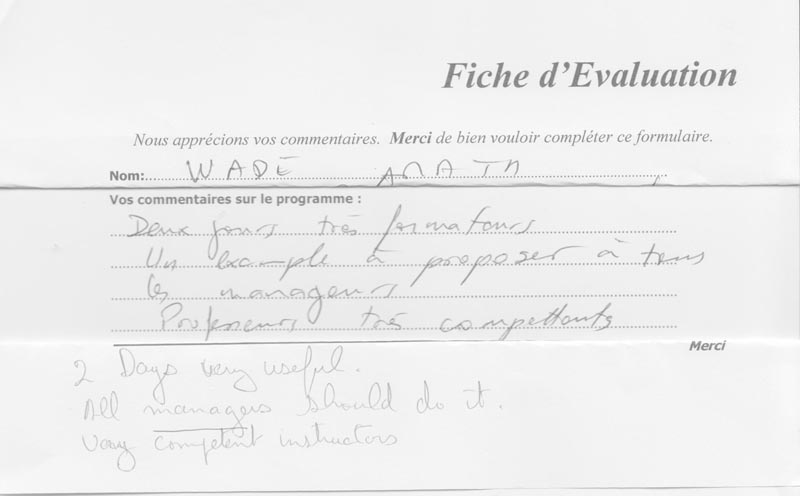 Fiche d'Evaluation
Nous apprécions vos commentaires. Merci de bien vouloir compléter ce formulaire.
Nom: WADE
Vos commentaires sur le programme :
Deux jours très formateurs
Un example à proposer à tous
les manageurs
Professeurs très compettants
Merci
2 Days very useful.
All managers should do it.
Very competent instructors